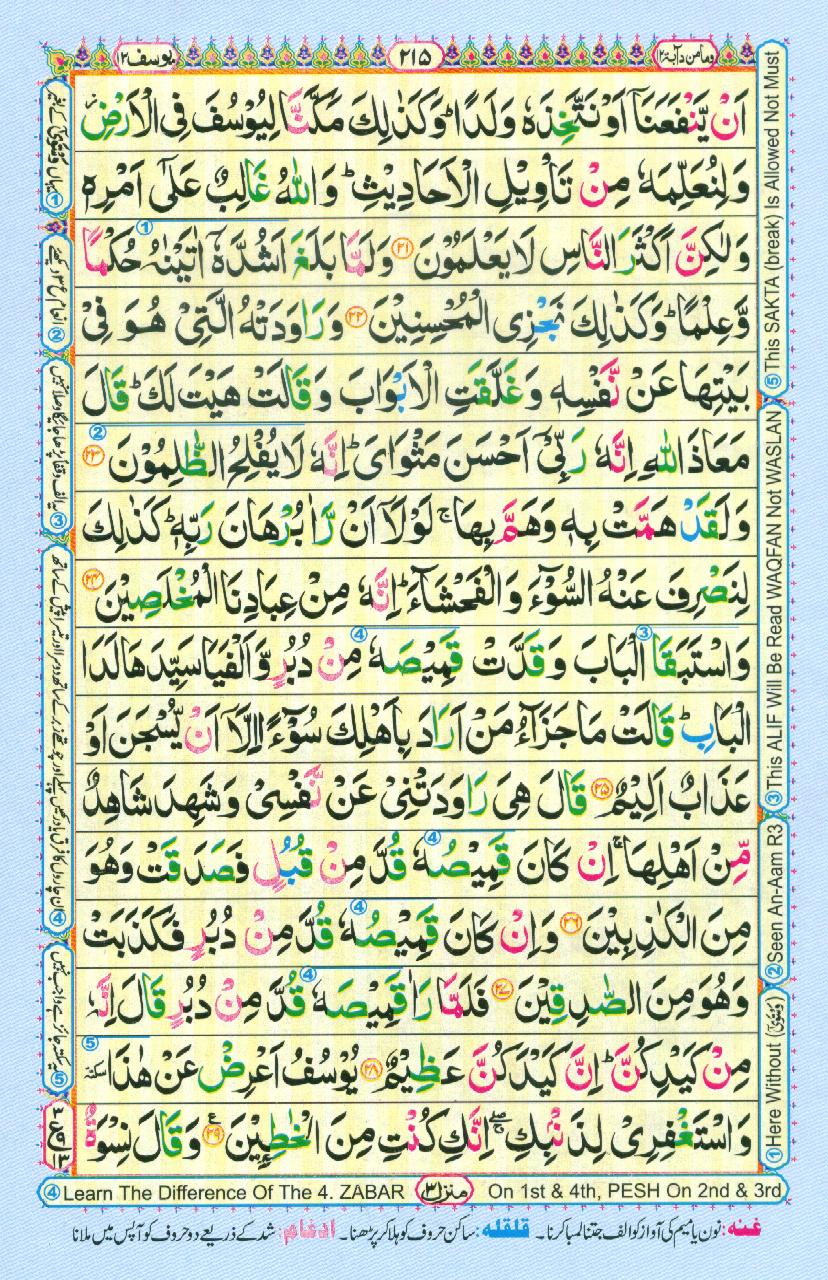 وما من دآبة ١٢
٢١٥
يوسف ١٢
اَنْ يَّنْفَعَنَاۤ اَوْ نَتَّخِذَهٗ وَلَدًاؕ وَكَذٰلِكَ مَكَّنَّا لِيُوْسُفَ فِى الْاَرْضِ٘
وَلِنُعَلِّمَهٗ مِنْ تَاْوِيْلِ الْاَحَادِيْثِؕ وَاللّٰهُ غَالِبٌ عَلٰۤى اَمْرِهٖ
وَلٰكِنَّ اَكْثَرَ النَّاسِ لَا يَعْلَمُوْنَ ٢١ وَلَمَّا بَلَغَ اَشُدَّهٗۤ اٰتَيْنٰهُ حُكْمًا
وَّعِلْمًاؕ وَكَذٰلِكَ نَجْزِى الْمُحْسِنِيْنَ ٢٢ وَرَاوَدَتْهُ الَّتِىْ هُوَ فِىْ
بَيْتِهَا عَنْ نَّفْسِهٖ وَغَلَّقَتِ الْاَبْوَابَ وَقَالَتْ هَيْتَ لَكَؕ قَالَ
مَعَاذَ اللّٰهِ اِنَّهٗ رَبِّىْۤ اَحْسَنَ مَثْوَاىَؕ اِنَّهٗ لَا يُفْلِحُ الظّٰلِمُوْنَ ٢٣
وَلَقَدْ هَمَّتْ بِهٖ وَهَمَّ بِهَاۚ لَوْلَاۤ اَنْ رَّاٰ بُرْهَانَ رَبِّهٖؕ كَذٰلِكَ
لِنَصْرِفَ عَنْهُ السُّوْۤءَ وَالْفَحْشَآءَؕ اِنَّهٗ مِنْ عِبَادِنَا الْمُخْلَصِيْنَ ٢٤
وَاسْتَبَقَا الْبَابَ وَقَدَّتْ قَمِيْصَهٗ مِنْ دُبُرٍ وَّاَلْفَيَا سَيِّدَهَا لَدَا
الْبَابِؕ قَالَتْ مَا جَزَآءُ مَنْ اَرَادَ بِاَهْلِكَ سُوْۤءًا اِلَّاۤ اَنْ يُّسْجَنَ اَوْ
عَذَابٌ اَلِيْمٌ ٢٥ قَالَ هِىَ رَاوَدَتْنِىْ عَنْ نَّفْسِىْ وَشَهِدَ شَاهِدٌ
مِّنْ اَهْلِهَاۚ اِنْ كَانَ قَمِيْصُهٗ قُدَّ مِنْ قُبُلٍ فَصَدَقَتْ وَهُوَ
مِنَ الْكٰذِبِيْنَ ٢٦ وَاِنْ كَانَ قَمِيْصُهٗ قُدَّ مِنْ دُبُرٍ فَكَذَبَتْ
وَهُوَ مِنَ الصّٰدِقِيْنَ ٢٧ فَلَمَّا رَاٰ قَمِيْصَهٗ قُدَّ مِنْ دُبُرٍ قَالَ اِنَّهٗ
مِنْ كَيْدِكُنَّؕ اِنَّ كَيْدَكُنَّ عَظِيْمٌ ٢٨ يُوْسُفُ اَعْرِضْ عَنْ هٰذَا سكتة
وَاسْتَغْفِرِىْ لِذَنْۢبِكِۖۚ اِنَّكِ كُنْتِ مِنَ الْخٰطِئِيْنَ ٢٩ وَقَالَ نِسْوَةٌ
⑤ This SAKTA (break) Is Allowed Not Must
③ This ALIF Will Be Read WAQFAN Not WASLAN
② Seen An-Aam R3
① Here Without (وَيُتِيْ)
④ Learn The Difference Of The 4. ZABAR
منزل ٣
On 1st & 4th, PESH On 2nd & 3rd
غنه: نون یا میم کی آواز کو الف جتنا لمبا کرنا۔ قلقله: ساکن حروف کو ہلا کر پڑھنا۔ ادغام: شد کے ذریعے دو حروف کو آپس میں ملانا